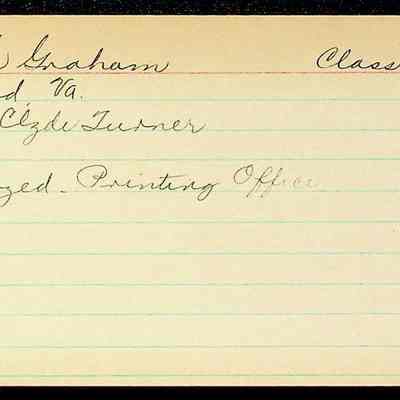 Graham Class
d, Va.
Clyde Turner
yed. Printing Office